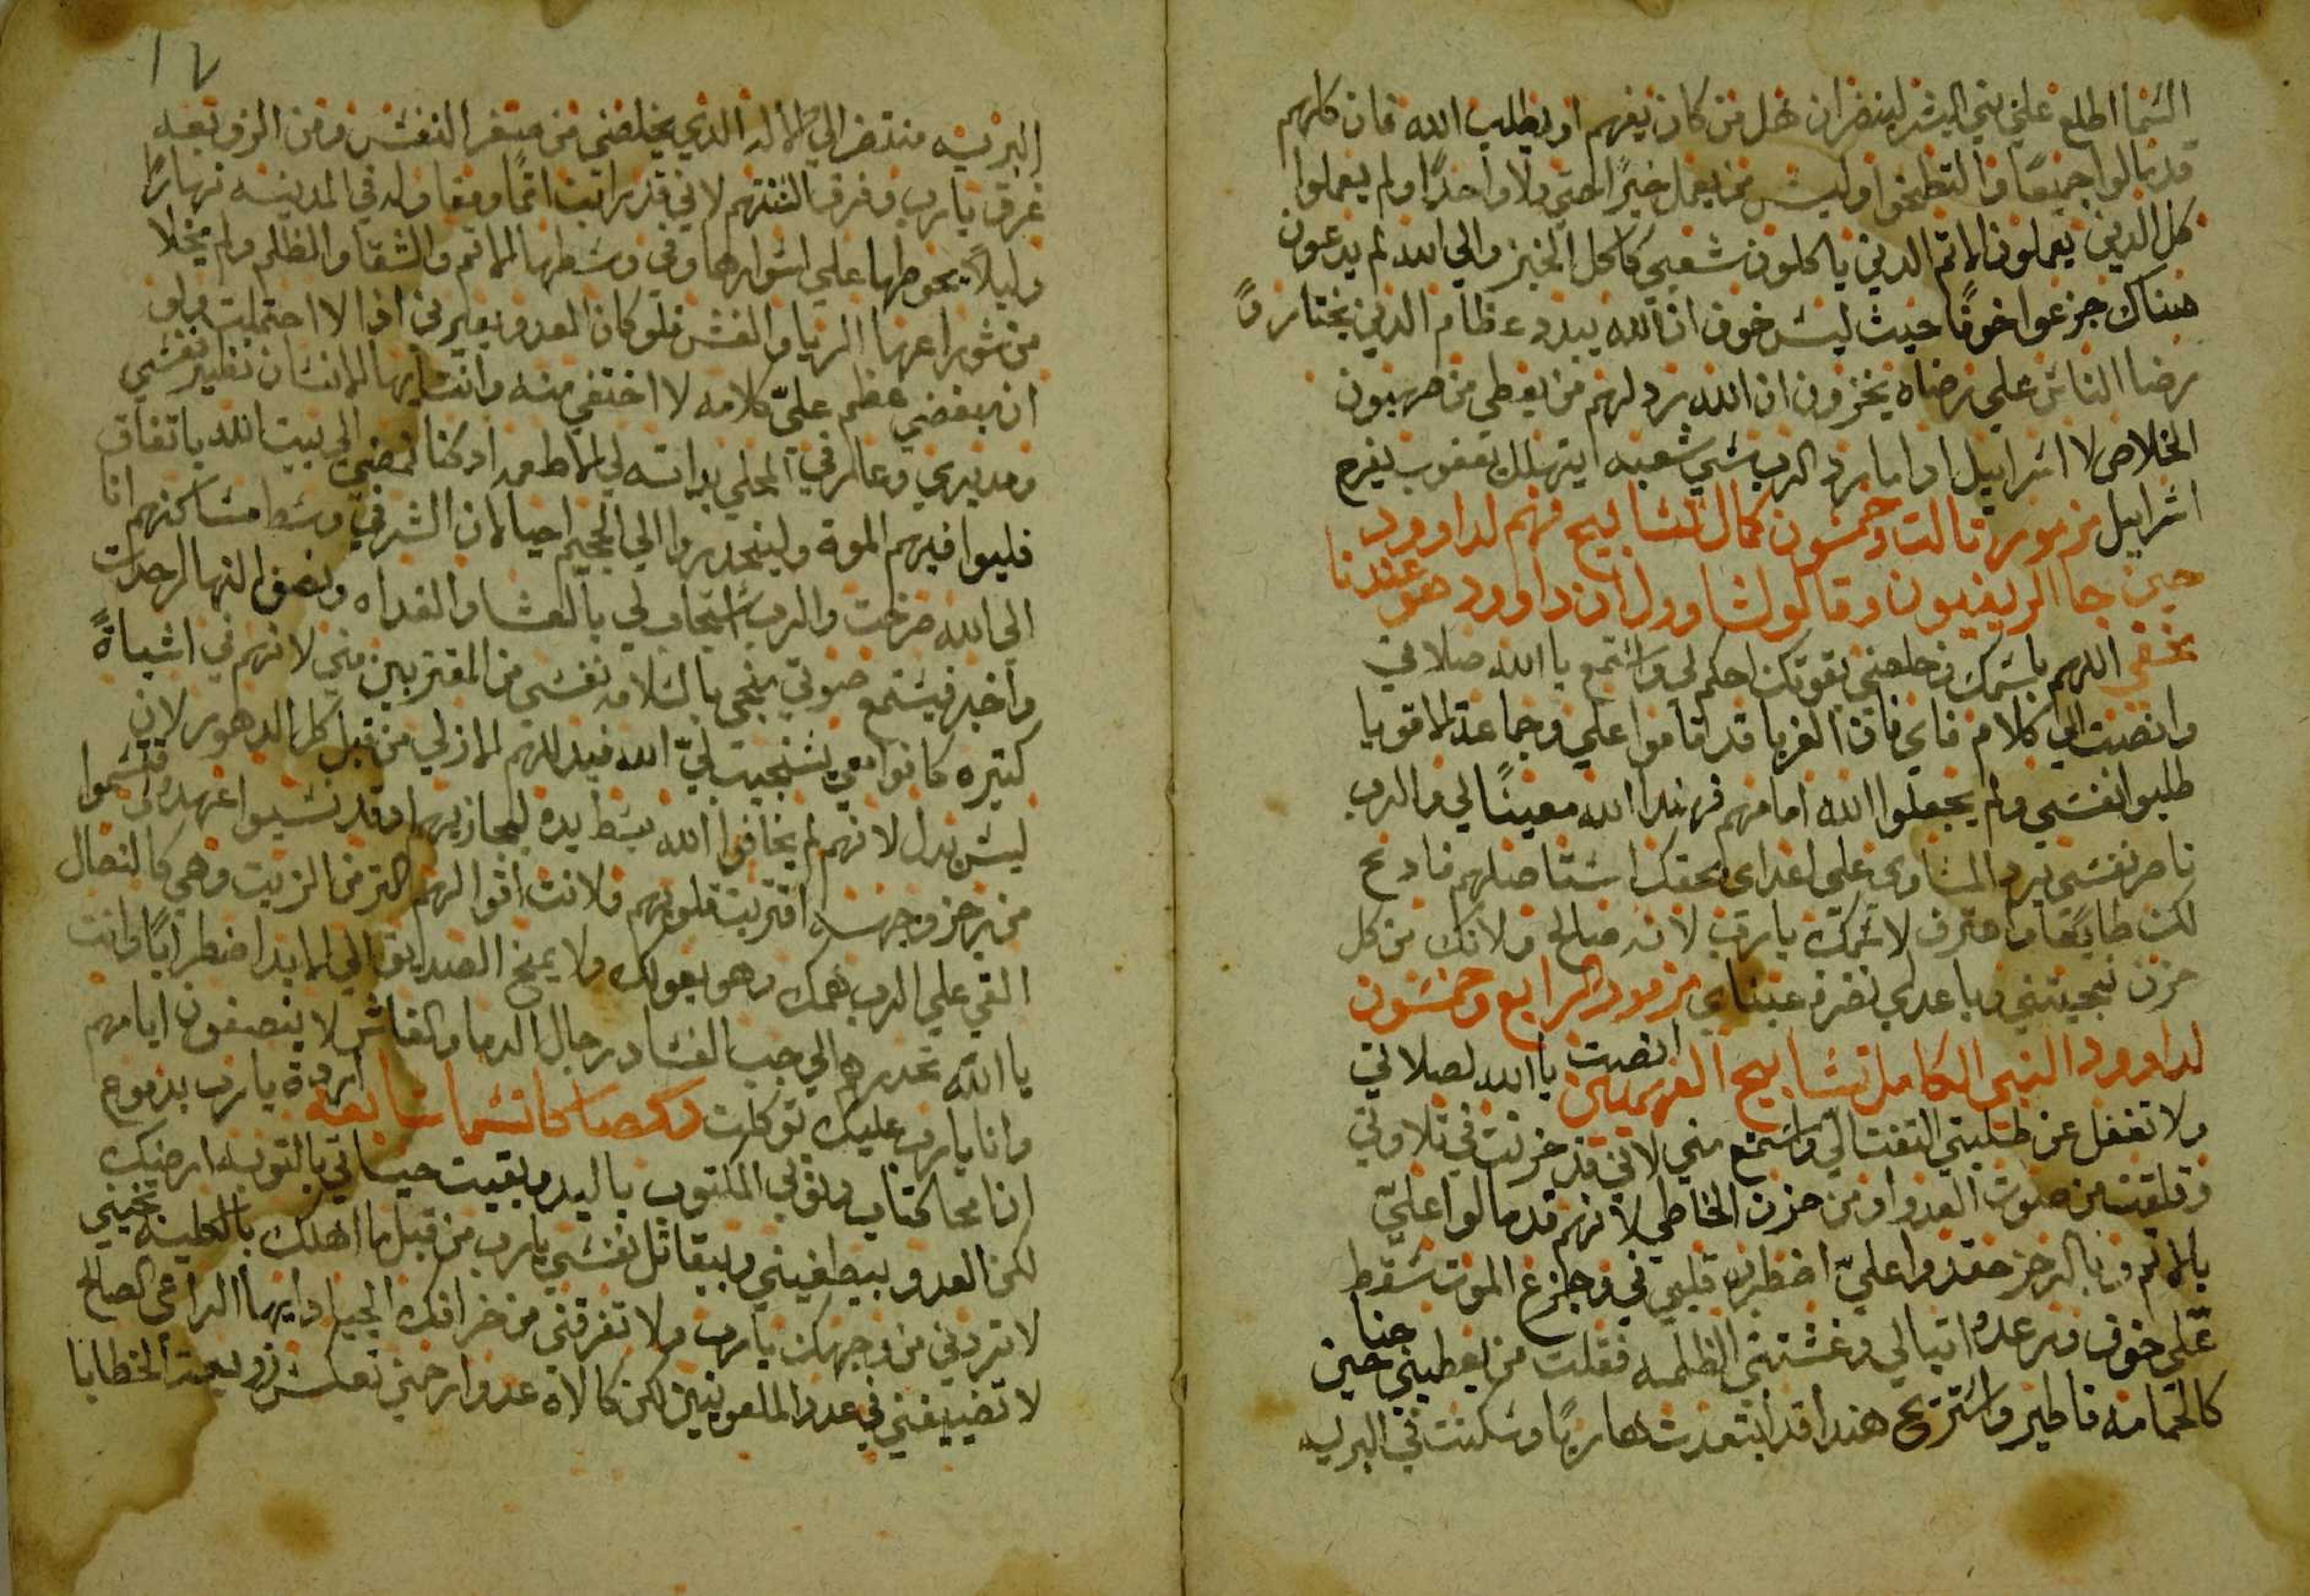 السما اطلع علي بني البشر لينضر ان هل من كان يفهم او يطلب الله فان كلهم
قد مالوا جميعًا والتطخوا وليس من يعمل خيرًا حتي ولا واحدًا ولم يعملوا
كل الدين يعملون الاتم الدين ياكلون شعبي كاكل الخبز والي الله لم يدعون
هناك جزعوا خوفًا حيث ليس خوف ان الله يبدد عظام الدين يختارون
رضا الناس علي رضاه يخزون ان الله رد لهم من يعطي من صهيون
الخلاص لا اسراييل ادا ما رد الرب سبي شعبه ايتهلل يعقوب يفرح
اسراييل مزمور تالت وخمسون كمال تسابيح فهم لداوود
حين جا الزيفيون وقالو لشاوول ان داوود هو عندنا
مختفي اللهم باسمك خلصني بقوتك احكم لي واستمع يا الله صلاتي
وانصت الي كلام فاي فان الغربا قد قاموا علي وجماعة الاقويا
طلبوا نفسي ولم يجعلوا الله امامهم فهندا الله معينًا لي والرب
ناصر نفسي يرد المساوي علي اعداي بحقك استاصلهم فادبح
لك طايعًا واعترف لاسمك يا رب لانه صالح ولانك من كل
حزن نجيتني وباعداي نضرة عيناي مزمور الرابع وخمسون
لداوود النبي الكامل تسابيح انصت يا الله لصلاتي
ولا تغفل عن طلبتي التفت الي واستمع مني لاني قد حزنت في تلاوتي
وقلقت من صوت العدو ومن حزن الخاطي لانهم قد مالوا عليّ
بالاتم وبالرجز حقدوا عليّ اضطرب قلبي في وجزع الموت سقط
عليّ خوف ورعده اتيا لي وغشتني الظلمه فقلت من يعطيني جناحين
كالحمامه فاطير واستريح هندا قد ابتعدت هاربًا وسكنت في البريه
١٧
البريه منتضر الي الاله الدي يخلصني من صغر النفس ومن الزوبعه
غرق يا رب وفرق السنتهم لاني قد رايت اتمًا ومقاوله في المدينه نهارًا
وليلاً يحوطها علي اسوارها وفي وسطها الاتم والشقا والظلم ولم يخلا
من شوارعها الربا والغش فلو كان العدو يعيرني ادا لا احتملت ولو
ان مبغضي عظم عليّ كلامه لا اختفي منه وانت ايها الانسان نظير نفسي
ومديري وعارفي المحلي بداته لي الاطعمه ادكنا نمضي الي بيت الله باتفاق
فليوافيهم الموة ولينحدروا الي الجحيم احيا لان الشر في وسط مساكنهم انا
الي الله صرخت والرب استجاب لي بالعشا والغداه ونصف النهار احدت
واخبر فيستمع صوتي ينجي بالسلامه نفسي من المقتربين مني لانهم في اشياةً
كتيره كانوا معي يستجيب ليّ الله فيدللهم الازلي من قبل كل الدهور لان
ليس بدل لانهم لم يخافوا الله بسط يده ليجازيهم وقد نسيوا عهده قتسموا
من رجز وجهه اقتربت قلوبهم ولانت اقوالهم اكتر من الزيت وهي كالنصال
القي علي الرب همك وهو يعولك ولا يمنح الصديق الي الابد اضطرابًا وانت
يا الله تحدرهم الي جب الفساد رجال الدما والغاش لا ينصفون ايامهم
وانا يا رب عليك توكلت اردة يا رب بدموع
انا محا كتاب دنوبي المكتوب باليد وبقيت حياتي بالتوبه ارضيك
لكن العدو بيطغيني وبيقاتل نفسي يا رب من قبل ما اهلك بالكليه نجيني
لا تردني من وجهك يا رب ولا تفرقني من خرافك الجياد ايها الراعي الصالح
لا تضيفني في عدد الملعونين لكن كالاه عدو ارحمني الخطايا